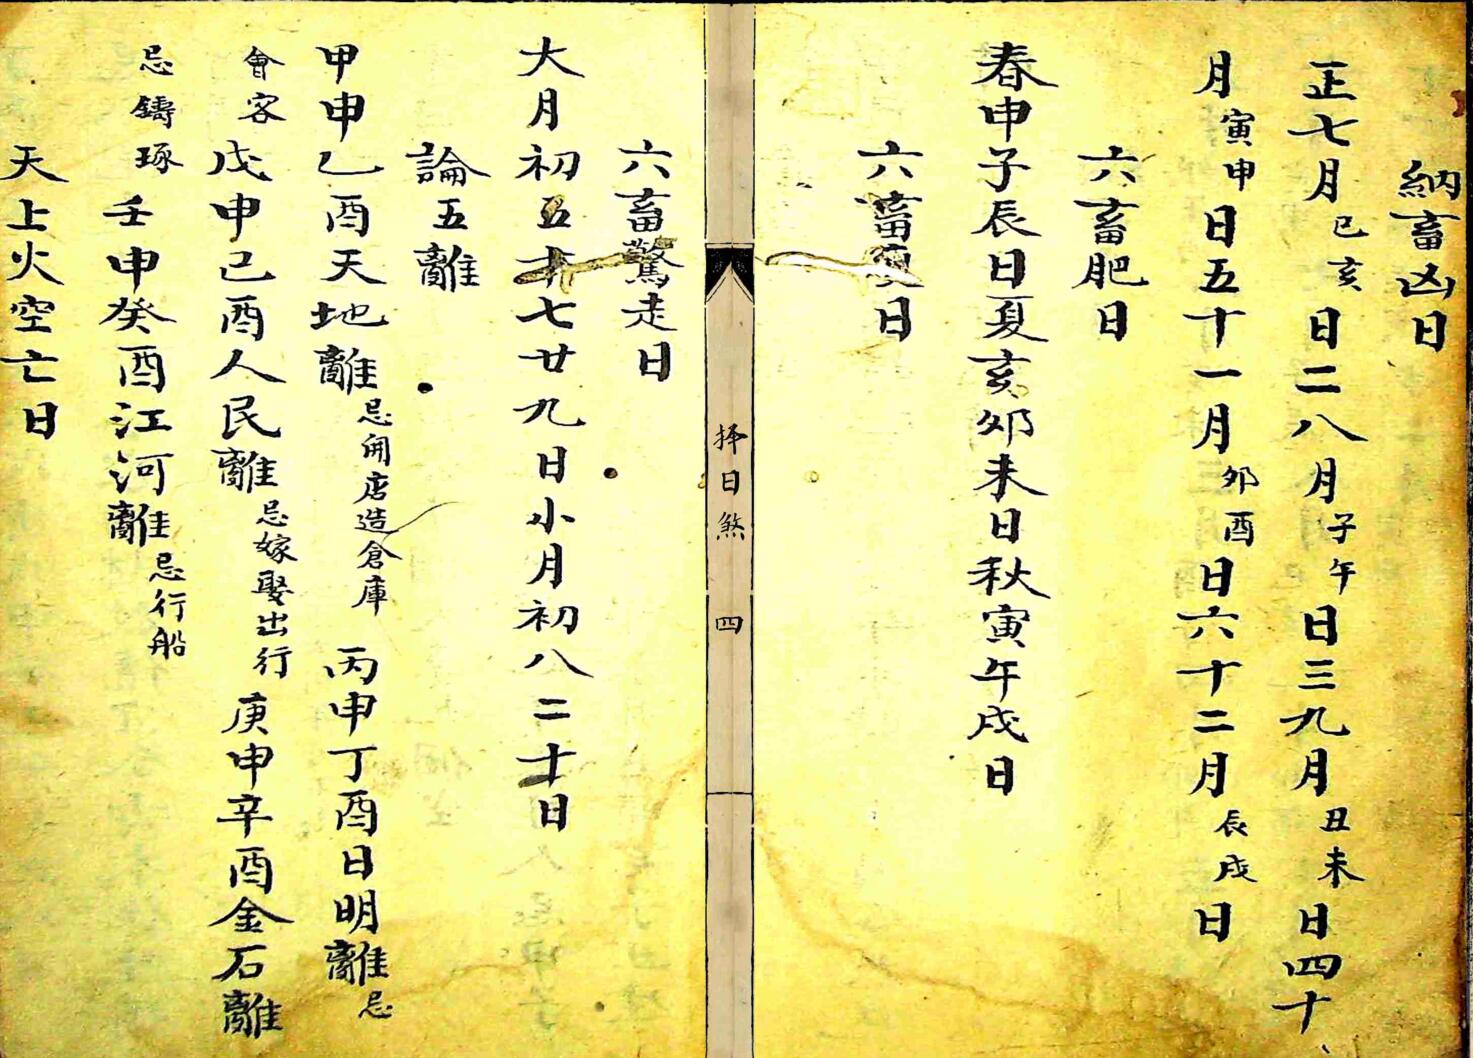 納畜凶日
正七月巳亥日二八月子午日三九月丑未日四十
月寅申日五十一月卯酉日六十二月辰戌日
六畜肥日
春申子辰日夏亥卯未日秋寅午戌日
六畜瘦日
择日煞 四
六畜驚走日
大月初五十七廿九日小月初八二十日
論五離
甲申乙酉天地離忌開店造倉庫 丙申丁酉日明離忌
會客戊申己酉人民離忌嫁娶出行庚申辛酉金石離
忌鑄琢壬申癸酉江河離忌行船
天上火空亡日